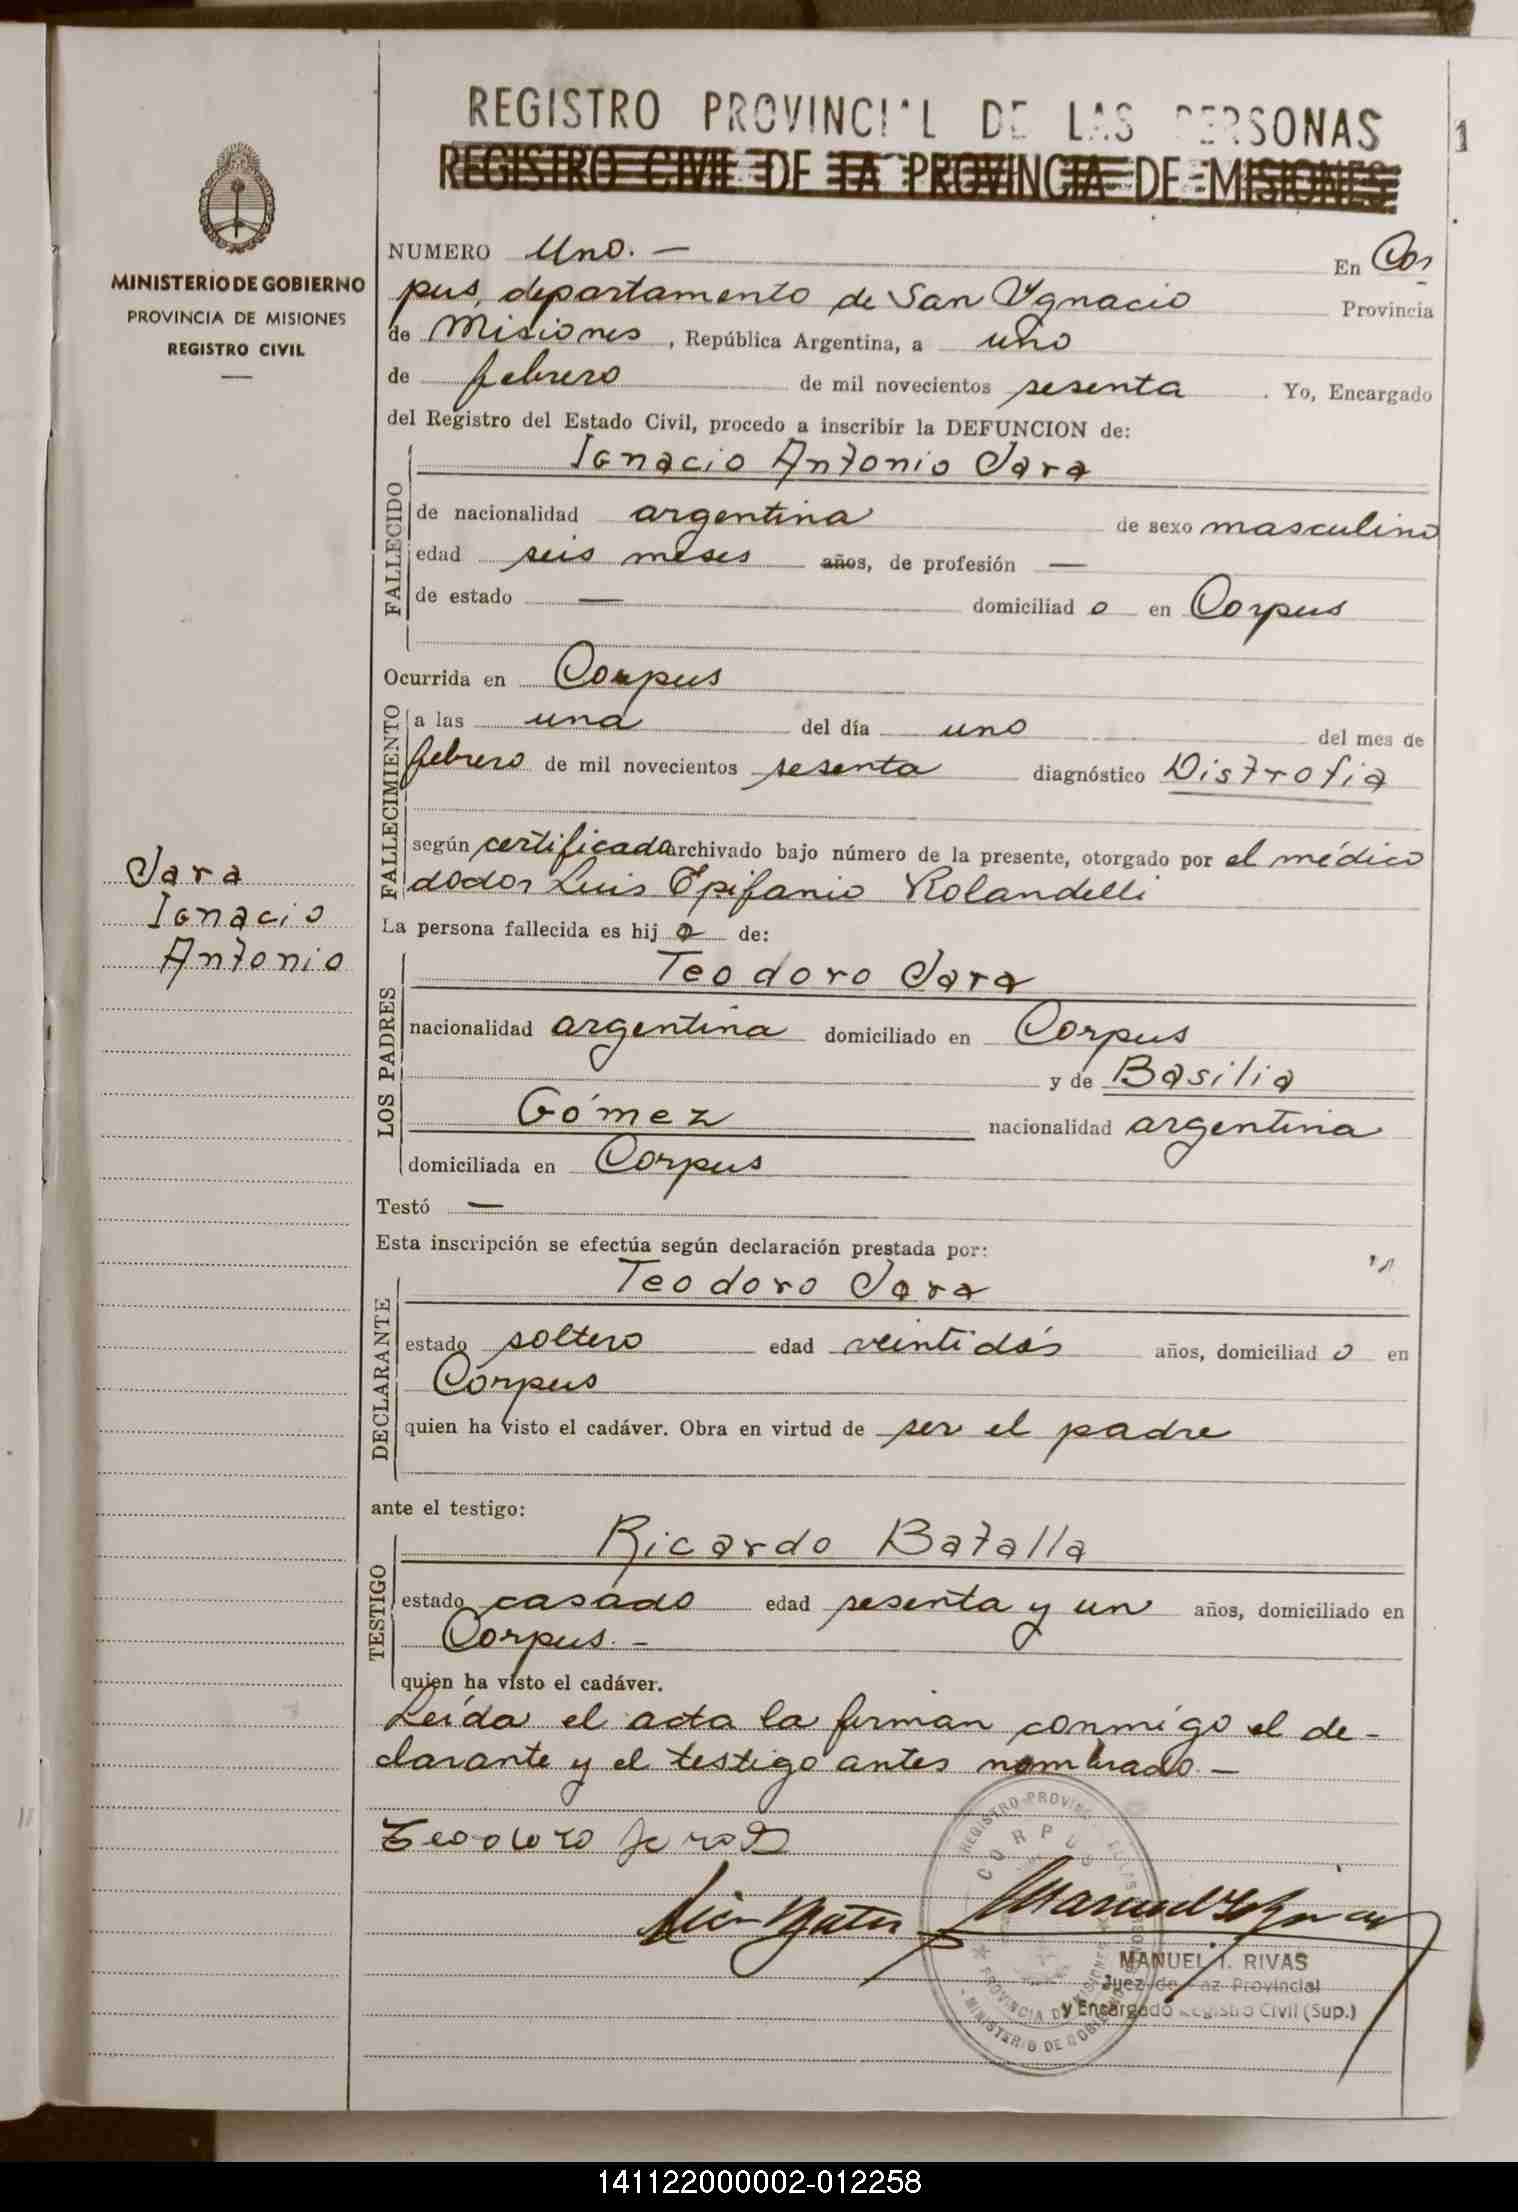 REGISTRO PROVINCIAL DE LAS PERSONAS
REGISTRO CIVIL DE LA PROVINCIA DE MISIONES
1
MINISTERIO DE GOBIERNO
PROVINCIA DE MISIONES
REGISTRO CIVIL
NUMERO Uno. — En Cor
pus, departamento de San Ygnacio Provincia
de Misiones, República Argentina, a uno
de febrero de mil novecientos sesenta. Yo, Encargado
del Registro del Estado Civil, procedo a inscribir la DEFUNCION de:
Ignacio Antonio Jara
FALLECIDO
de nacionalidad argentina de sexo masculino
edad seis meses años, de profesión —
de estado — domiciliad o en Corpus
Ocurrida en Corpus
FALLECIMIENTO
a las una del día uno del mes de
febrero de mil novecientos sesenta diagnóstico Distrofia
según certificado archivado bajo número de la presente, otorgado por el médico
doctor Luis Epifanio Rolandelli
Jara
Ignacio
Antonio
La persona fallecida es hij o de:
LOS PADRES
Teodoro Jara
nacionalidad argentina domiciliado en Corpus
y de Basilia
Gómez nacionalidad argentina
domiciliada en Corpus
Testó —
Esta inscripción se efectúa según declaración prestada por:
DECLARANTE
Teodoro Jara
estado soltero edad veintidós años, domiciliad o en
Corpus
quien ha visto el cadáver. Obra en virtud de ser el padre
ante el testigo:
TESTIGO
Ricardo Batalla
estado casado edad sesenta y un años, domiciliado en
Corpus. —
quien ha visto el cadáver.
Leída el acta la firman conmigo el de-
clarante y el testigo antes nombrado. —
Teodoro Jara
REGISTRO PROVINCIAL DE LAS PERSONAS
CORPUS
PROVINCIA DE MISIONES
MINISTERIO DE GOBIERNO
MANUEL I. RIVAS
Juez de Paz Provincial
y Encargado Registro Civil (Sup.)
141122000002-012258